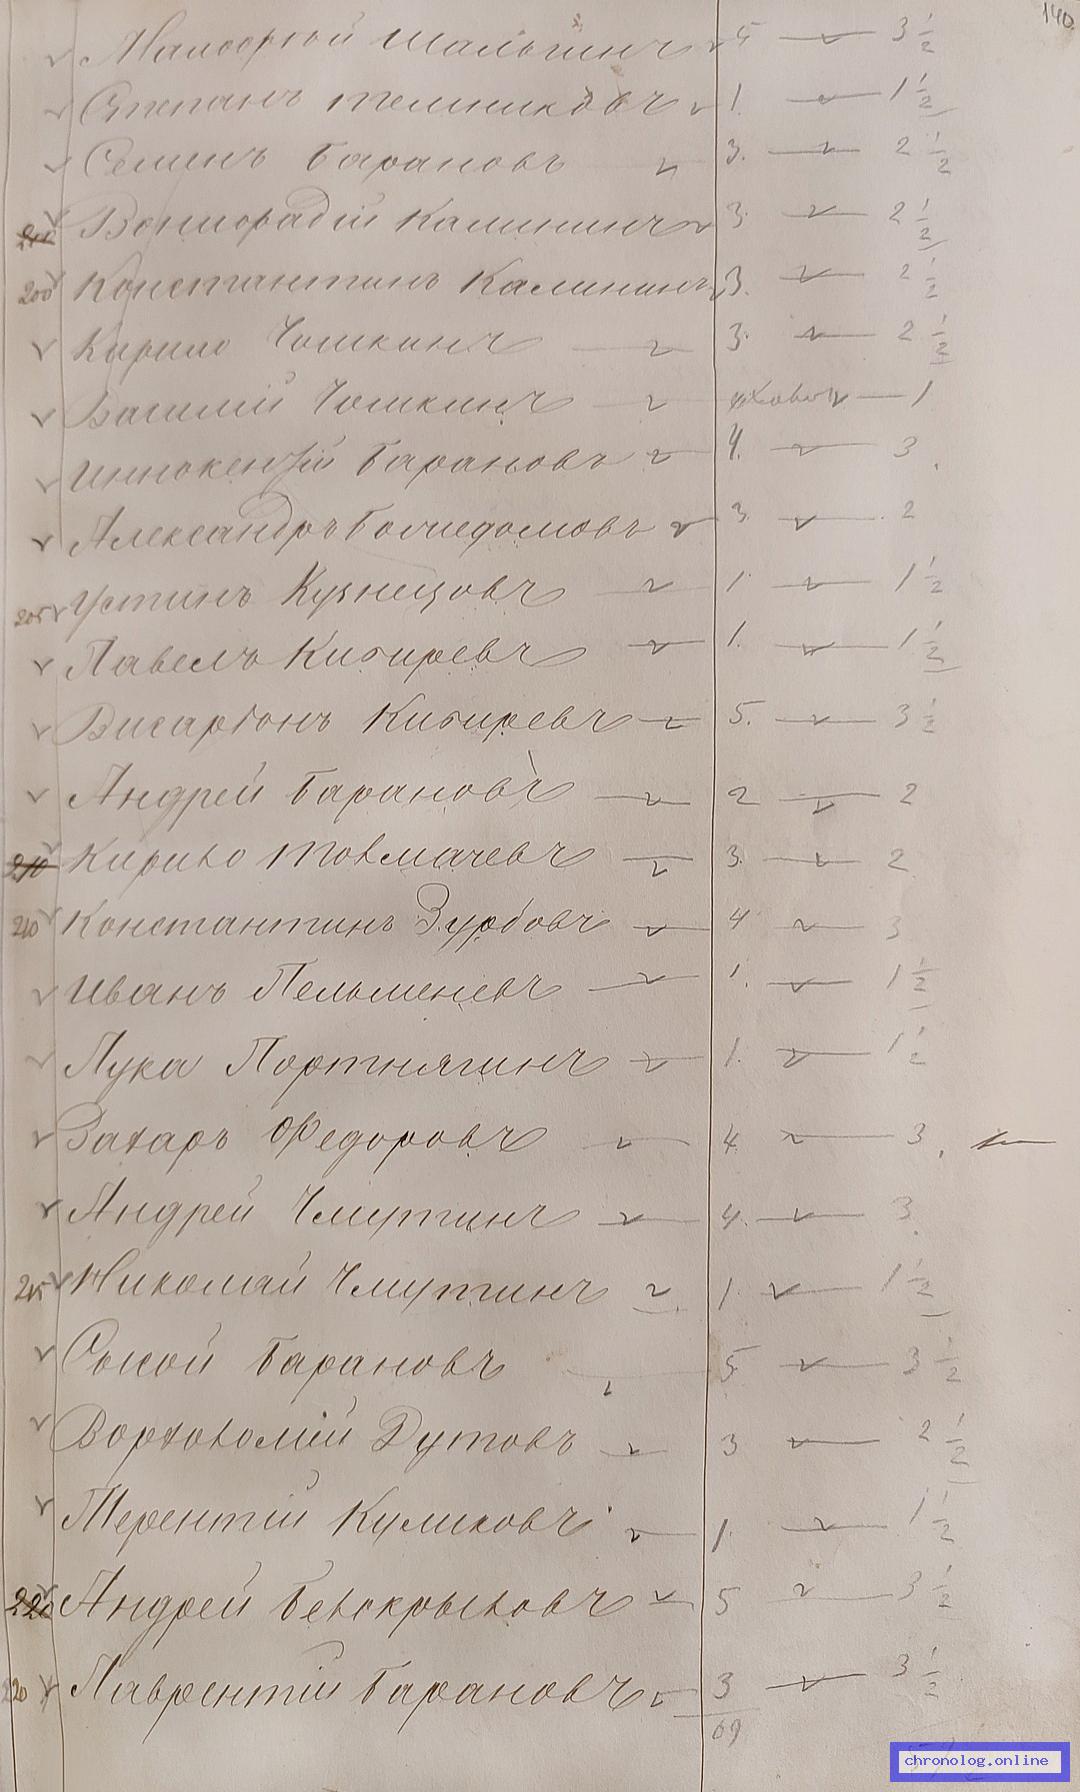 140.
Шалыгинъ 5 — 3 1/2
Степанъ Мельниковъ 1. — 1 1/2
Семенъ Барановъ 3. — 2 1/2
Калининъ 3. — 2 1/2
200 Константинъ Калининъ 3. — 2 1/2
Кирило Чошкинъ 3. — 2 1/2
Василій Чошкинъ — 1
Иннокентій Барановъ 4. — 3
Александръ 3. — 2
205 Устинъ Кузнецовъ 1. — 1 1/2
Павелъ Кибиревъ 1. — 1 1/2
Висаріонъ Кибиревъ 5. — 3 1/2
Андрей Барановъ 2 — 2
210 Кирило Толмачевъ 3. — 2
210 Константинъ Зурбовъ 4 — 3
Иванъ Пельменевъ 1. — 1 1/2
Лука Портнягинъ 1. — 1 1/2
Захаръ Федоровъ 4. — 3
Андрей Чмутинъ 4. — 3
215 Николай Чмутинъ 1. — 1 1/2
Сысой Барановъ 5 — 3 1/2
Вортоломій Дутовъ 3 — 2 1/2
Терентій Куликовъ 1. — 1 1/2
220 Андрей Белокрыловъ 5 — 3 1/2
220 Лаврентій Барановъ 3 — 3 1/2
69
chronolog.online